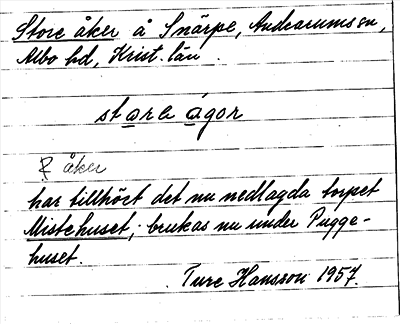 Store åker å Snärpe, Andrarums sn,
Albo hd, Krist. län.
store ågor
åker
har tillhört det nu nedlagda torpet
Mistehuset; brukas nu under Pugge-
huset.
Ture Hansson 1957.